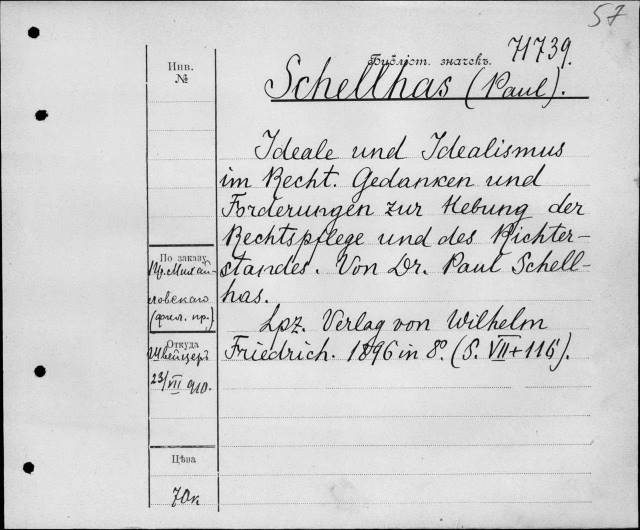 57
Библіот. значекъ. 71739.
Schellhas (Paul).
Инв.
№
Ideale und Idealismus
im Recht. Gedanken und
Forderungen zur Hebung der
Rechtspflege und des Richter-
standes. Von Dr. Paul Schell-
has.
Lpz. Verlag von Wilhelm
Friedrich. 1896 in 8º. (S. VII+116).
По заказу
Пр. Михай-
ловскаго
(фил. пр.)
Откуда
Швейцеръ
23/VII 910.
Цѣна
70к